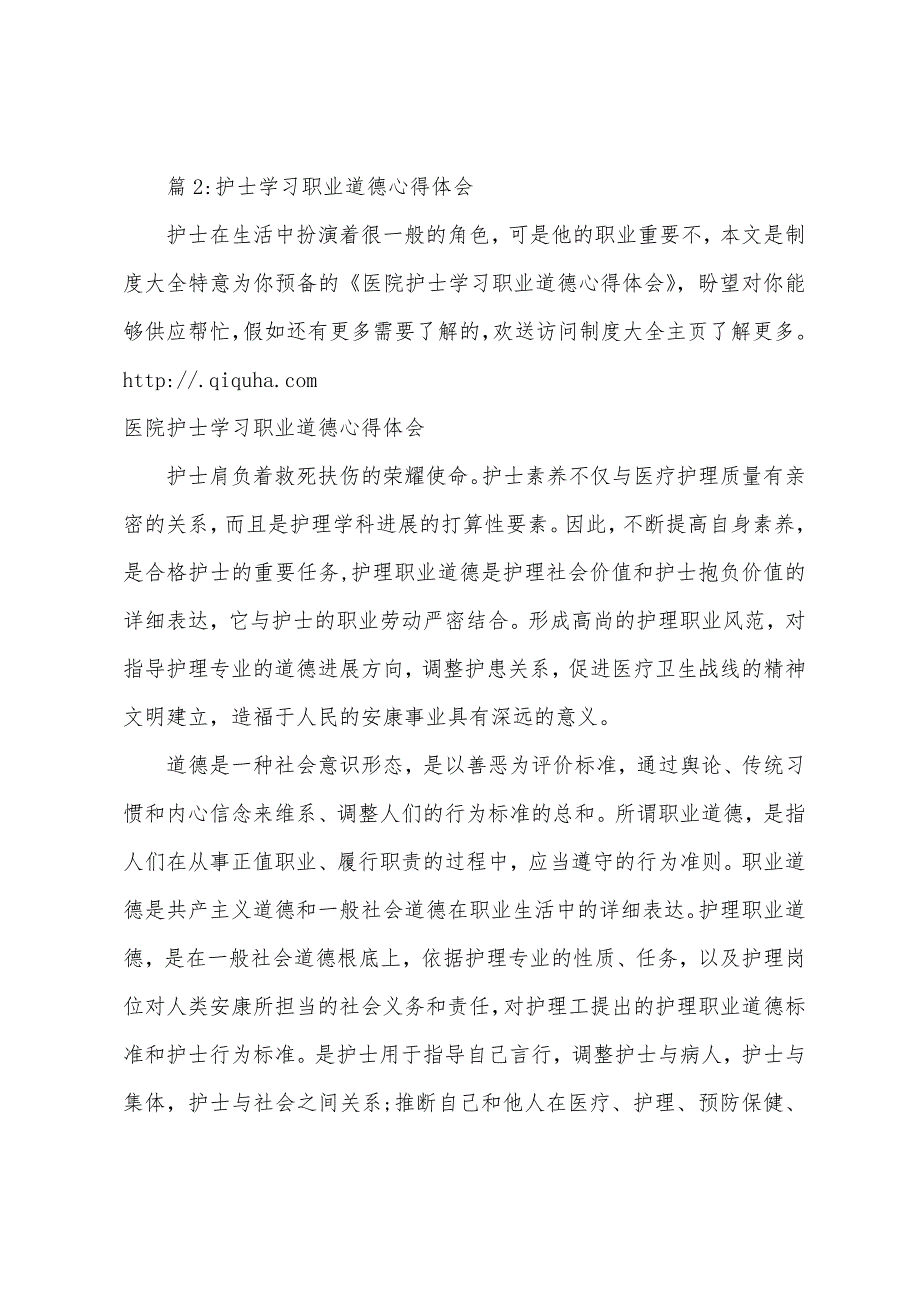 篇2:护士学习职业道德心得体会
护士在生活中扮演着很一般的角色，可是他的职业重要不，本文是制
度大全特意为你预备的《医院护士学习职业道德心得体会》，盼望对你能
够供应帮忙,假如还有更多需要了解的,欢送访问制度大全主页了解更多。
http://.qiquha.com
医院护士学习职业道德心得体会
护士肩负着救死扶伤的荣耀使命。护士素养不仅与医疗护理质量有亲
密的关系,而且是护理学科进展的打算性要素。因此,不断提高自身素养,
是合格护士的重要任务,护理职业道德是护理社会价值和护士抱负价值的
详细表达，它与护士的职业劳动严密结合。形成高尚的护理职业风范，对
指导护理专业的道德进展方向，调整护患关系，促进医疗卫生战线的精神
文明建立，造福于人民的安康事业具有深远的意义。
道德是一种社会意识形态，是以善恶为评价标准，通过舆论、传统习
惯和内心信念来维系、调整人们的行为标准的总和。所谓职业道德，是指
人们在从事正值职业、履行职责的过程中，应当遵守的行为准则。职业道
德是共产主义道德和一般社会道德在职业生活中的详细表达。护理职业道
德，是在一般社会道德根底上，依据护理专业的性质、任务，以及护理岗
位对人类安康所担当的社会义务和责任,对护理工提出的护理职业道德标
准和护士行为标准。是护士用于指导自己言行，调整护士与病人，护士与
集体，护士与社会之间关系;推断自己和他人在医疗、护理、预防保健、